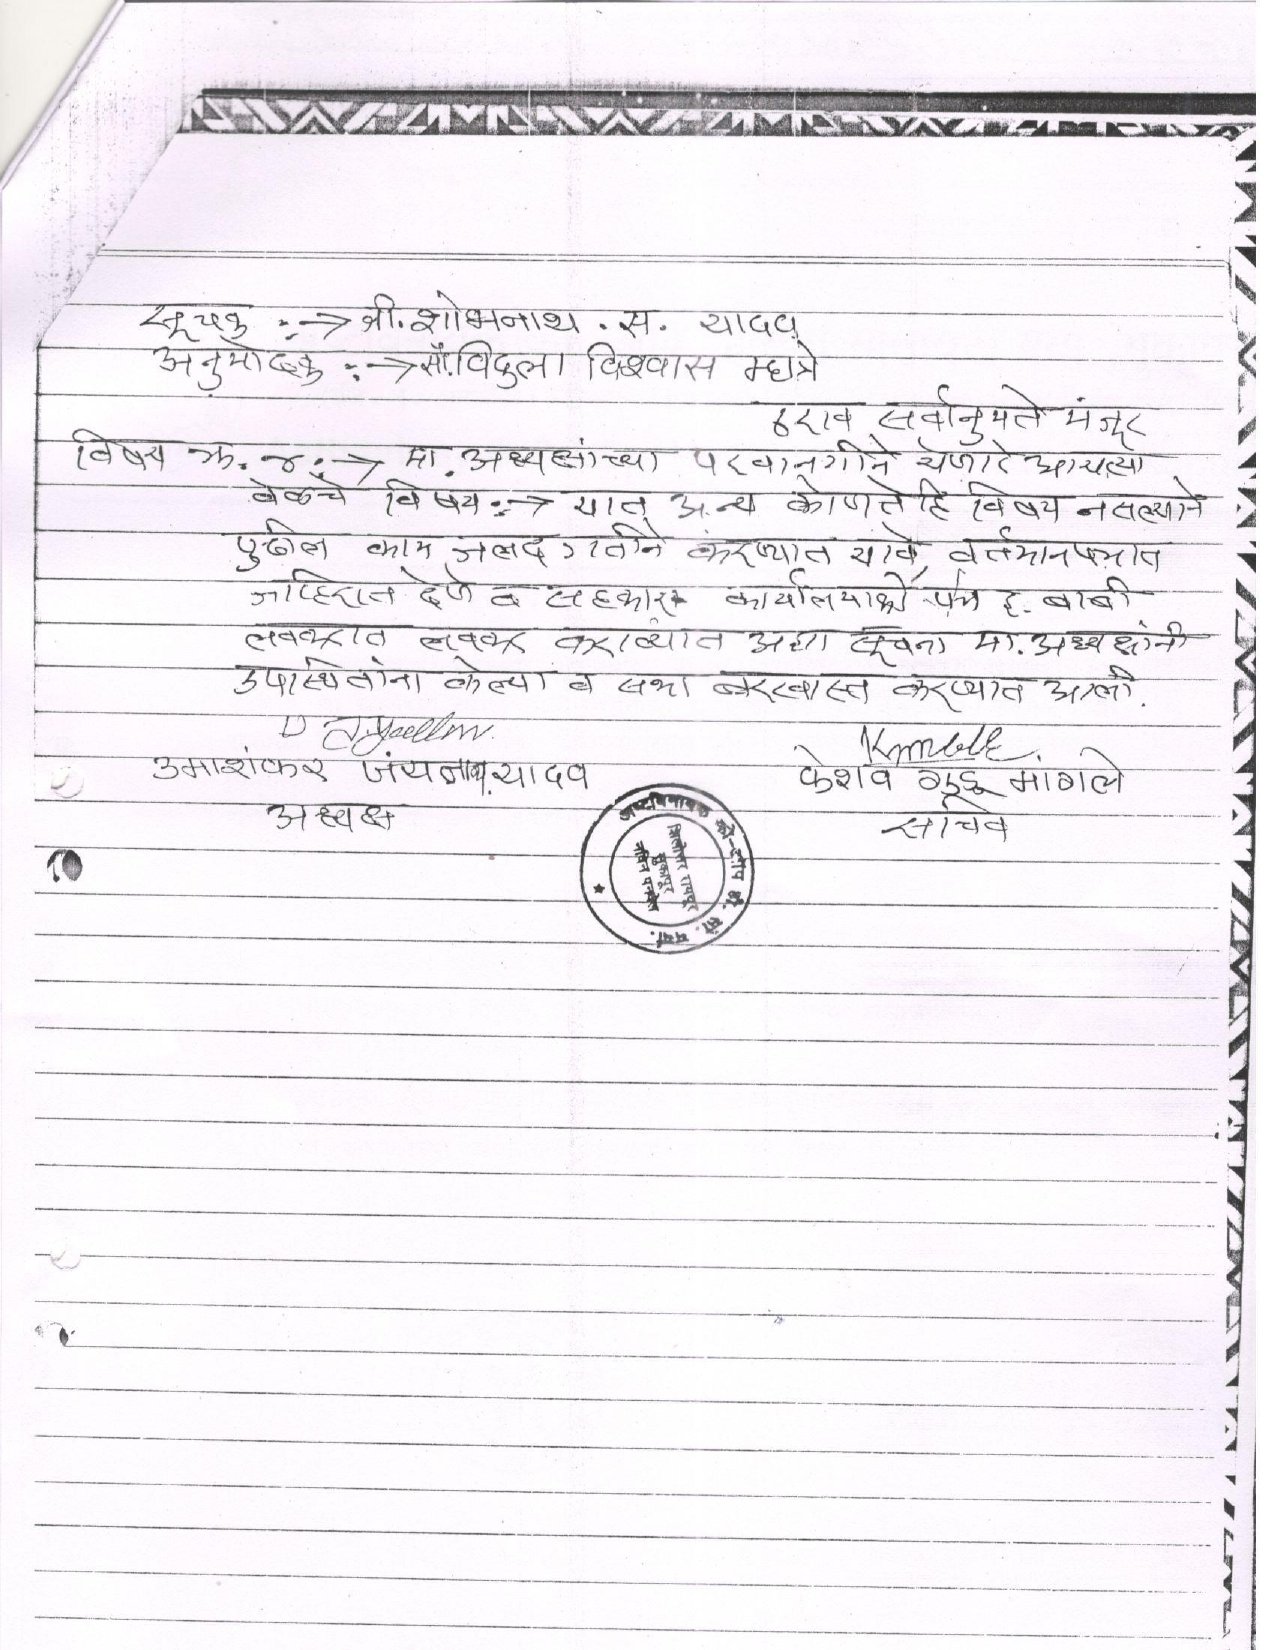 सूचक :→ श्री. शोभनाथ . स. यादव
अनुमोदक :→ सौ. विदुला विश्वास म्हात्रे
ठराव सर्वानुमते मंजूर
विषय क्र. ४ :→ मा. अध्यक्षांच्या परवानगीने येणारे आयत्या
वेळचे विषय :→ यात अन्य कोणतेहि विषय नसल्याने
पुढील काम जलद गतीने करण्यात यावे, वर्तमानपत्रात
जाहिरात देणे व सहकार कार्यालयाशी इ. बाबी
लवकरात लवकर कराव्यात अशा सूचना मा. अध्यक्षांनी
उपस्थितांना केल्या व सभा बरखास्त करण्यात आली.
उमाशंकर यादव केशव मांगले
अध्यक्ष सचिव
अष्टविनायक को-ऑप हौ. सो. मर्या.